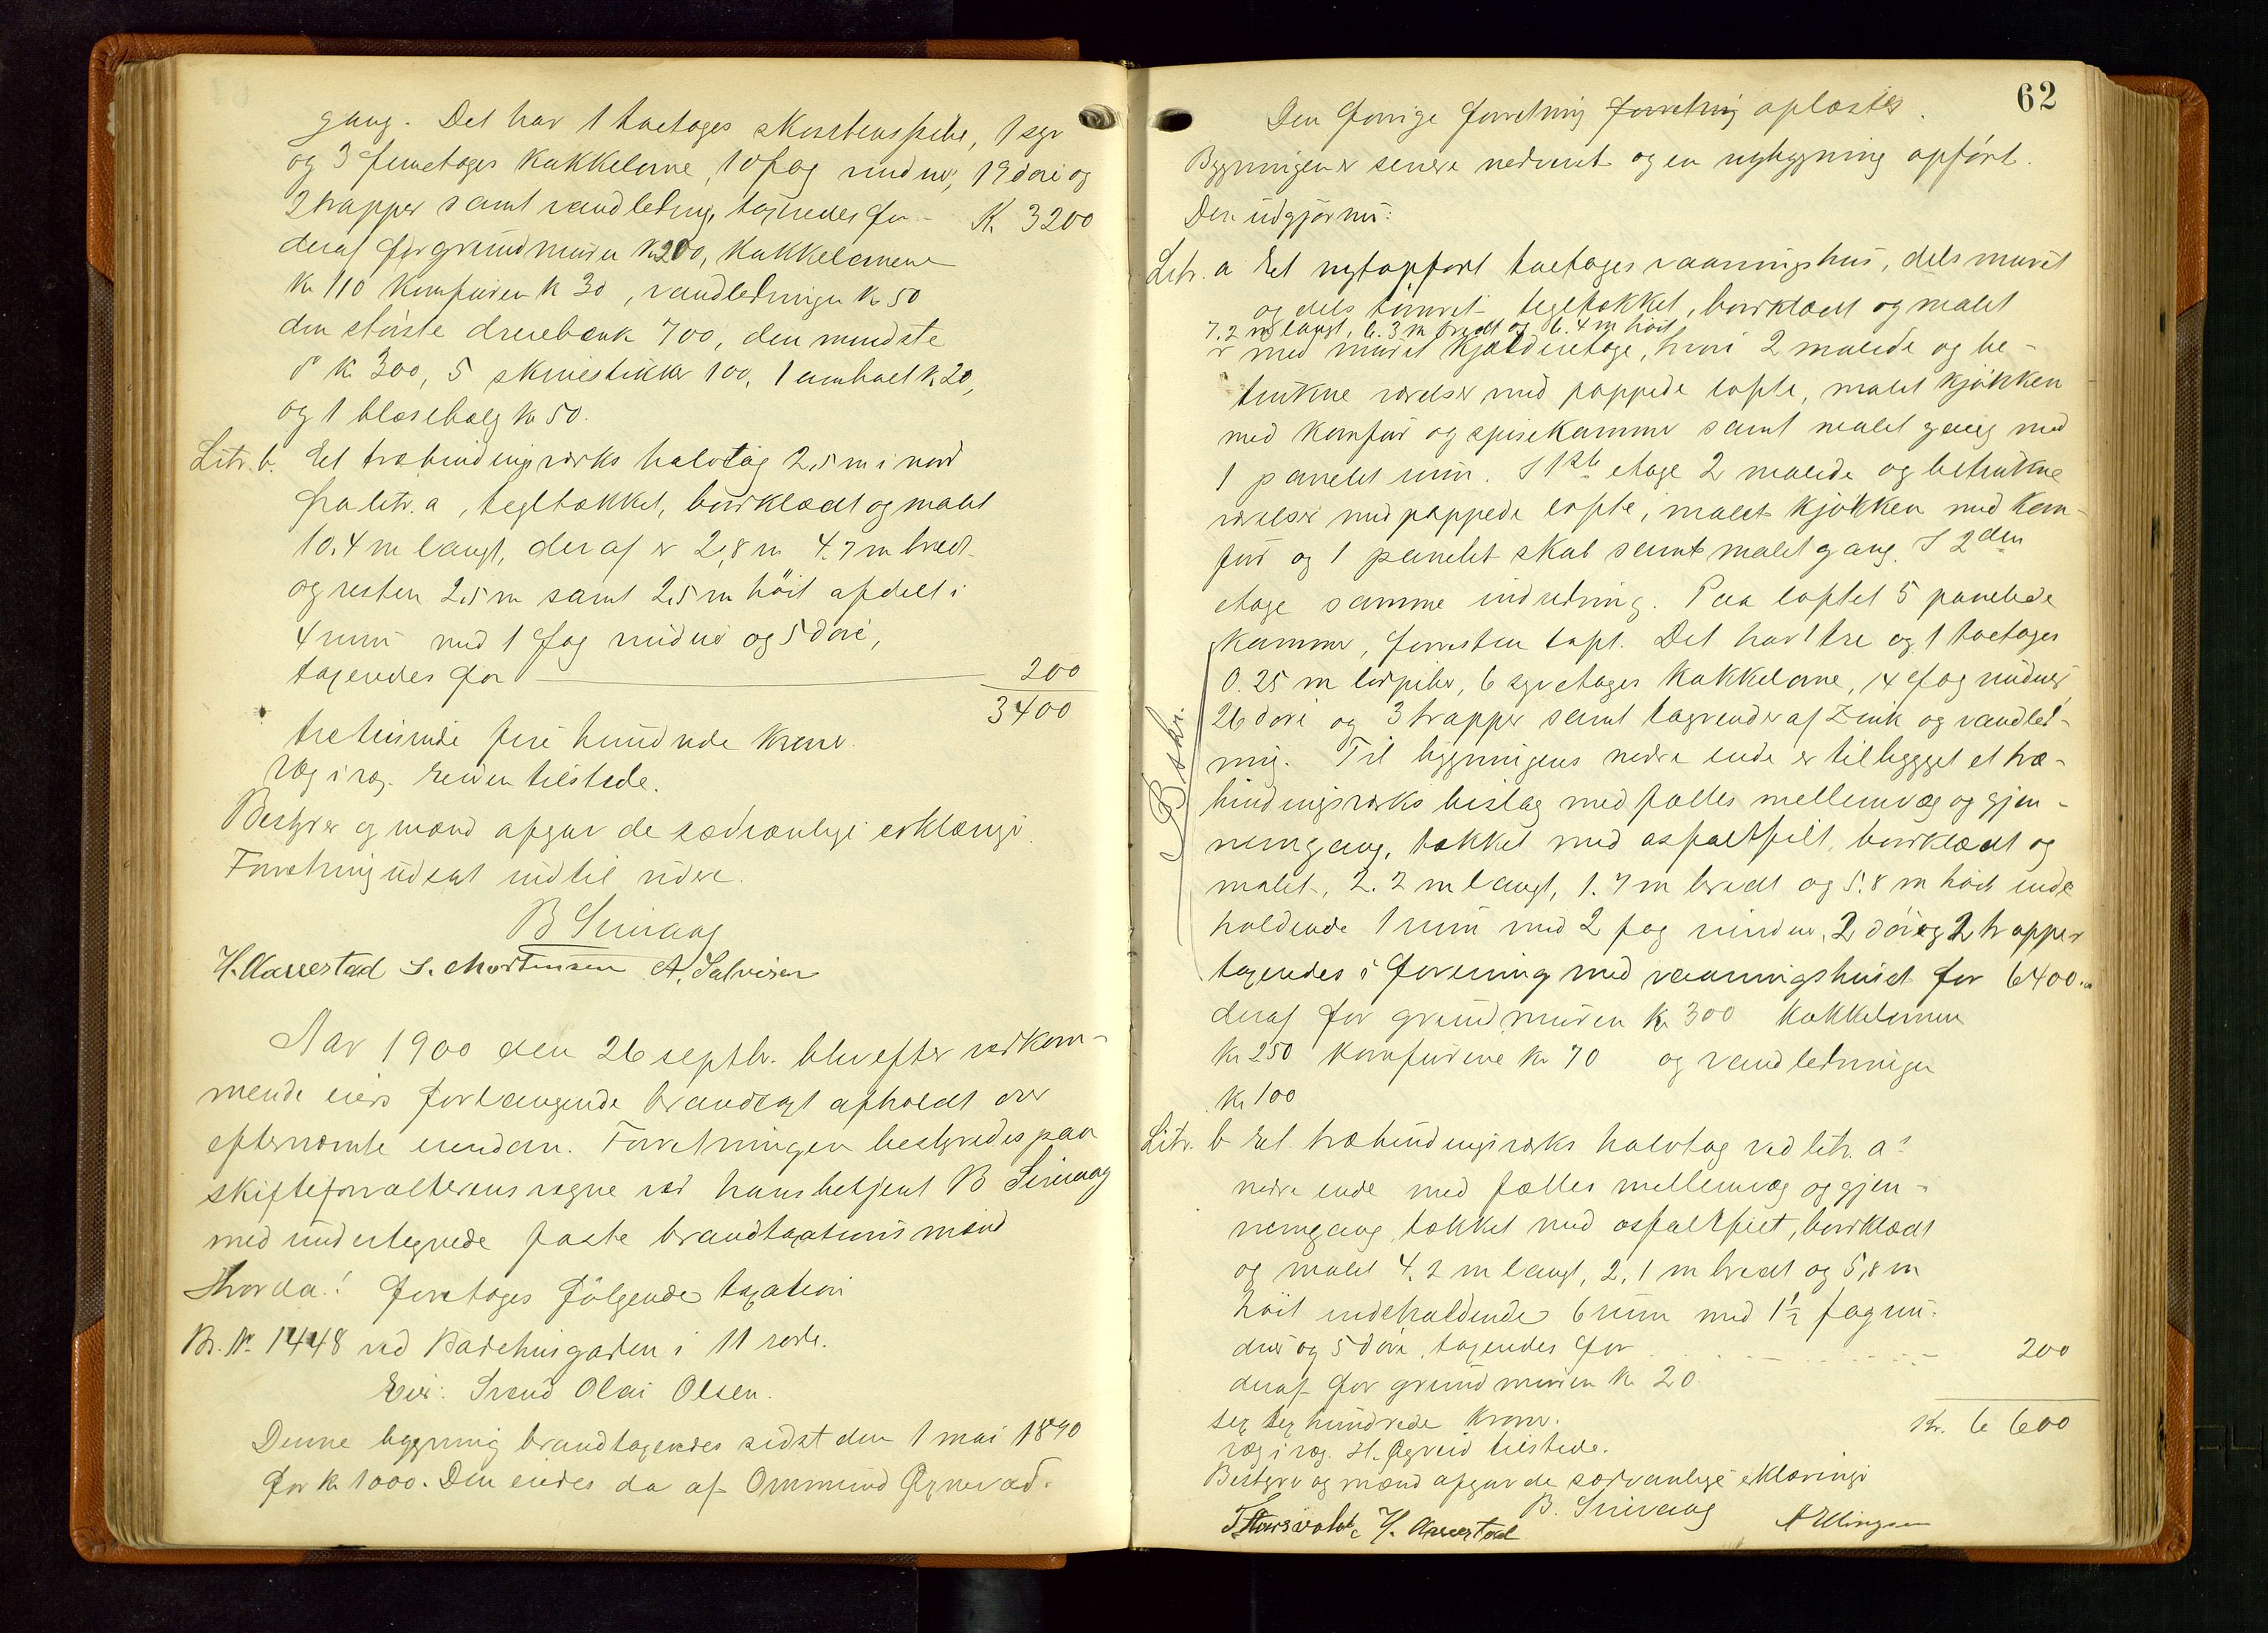 gang. Det har 1 toetages skorstenspibe, 1 syv
og 3 femetages kakkelovne, 10 fag vinduer, 19 döre og
2 trapper samt vandledning, taxeredes for - K. 3200
deraf for grundmuren K 200, kakkelovnene
Kr 110 komfuren K 30, vandledningen Kr 50
den störste dreiebænk 700, den mindste
do Kr 300, 5 skruestikker 100, 1 ambolt K. 20,
og 1 blæsebælg Kr 50.
Litr. b. Et træbindingsværks halvtag 2,5 m i nord
fra litr. a, tegltækket, bordklædt og malet
10.4 m langt, deraf er 2,8 m 4.7 m bredt
og resten 2,5 m samt 2,5 m höit afdelt i
4 rum med 1 fag vinduer og 5 döre,
taxeredes for 200
3400
tretusinde fire hundrede kroner.
Væg i væg. Eieren tilstede.
Bestyrer og mænd afgav de sædvanlige erklæringer.
Forretning udsat indtil videre.
B Sirivaag
H. Aarrestad S. Mortensen A. Salvesen
Aar 1900 den 26 septbr. blev efter vedkom-
mende eiers forlangende brandtaxt afholdt over
efternævnte eiendom. Forretningen bestyredes paa
skifteforvalterens vegne ved hans betjent B Sirivaag
med undertegnede faste brandtaxationsmænd
Hvorda: foretages fölgende taxation
Br. No 1448 ved Badehusgaden i 11 rode.
Eier: Svend Olai Olsen.
Denne bygning brandtaxeredes sidst den 1 mai 1890
for Kr 1000. Den eiedes da af Ommund
62
Den forrige forretning forretning oplæstes.
Bygningen er senere nedrevet og en nybygning opfört.
Den udgjör nu:
Litr. a Et nytopfört toetages vaaningshus, dels muret
og dels tömret tegltækket, bordklædt og malet
7.2 m langt, 6.3 m bredt og 6.4 m höit
med muret kjælderetage, hvori 2 malede og be-
trukne værelser med pappede lofte, malet kjökken
med komfur og spisekammer samt malet gang med
1 panelet rum. I 1ste etage 2 malede og betrukne
værelser med pappede lofte, malet kjökken med kom-
fur og 1 panelet skab samt malet gang. I 2den
etage samme indredning. Paa loftet 5 panelede
kammer, forresten loft. Det har 1 tre og 1 toetages
0.25 m lörpiber, 6 syvetages kakkelovne, 14 fag vinduer
26 döre og 3 trapper samt tagrender af Zink og vandled-
ning. Til bygningens nedre ende er tilbygget et træ-
bindingsværks bislag med fælles mellemvæg og gjen-
nemgang, tækket med asfaltfilt, bordklædt og
malet, 2.2 m langt, 1.7 m bredt og 5.8 m höit inde
holdende 1 rum med 2 fag vinduer, 2 döre og 2 trapper
taxeredes i forening med vaaningshuset for 6400.
Beskr.
deraf for grundmuren Kr 300 kakkelovnene
Kr 250 komfurene Kr 70 og vandledningen
Kr 100
Litr. b Et træbindingsværks halvtag ved litr. a's
nedre ende med fælles mellemvæg og gjen-
nemgang tækket med asfaltfilt, bordklædt
og malet 4.2 m langt, 2,1 m bredt og 5,8 m
höit indeholdende 6 rum med 1½ fag vin-
duer og 5 döre, taxeredes for 200
deraf for grundmuren Kr 20.
sex sex hundrede kroner. Kr. 6 600
væg i væg. H. tilstede.
Bestyrer og mænd afgav de sædvanlige erklæringer
B. Sirivaag
H. Aarrestad A Ellingsen